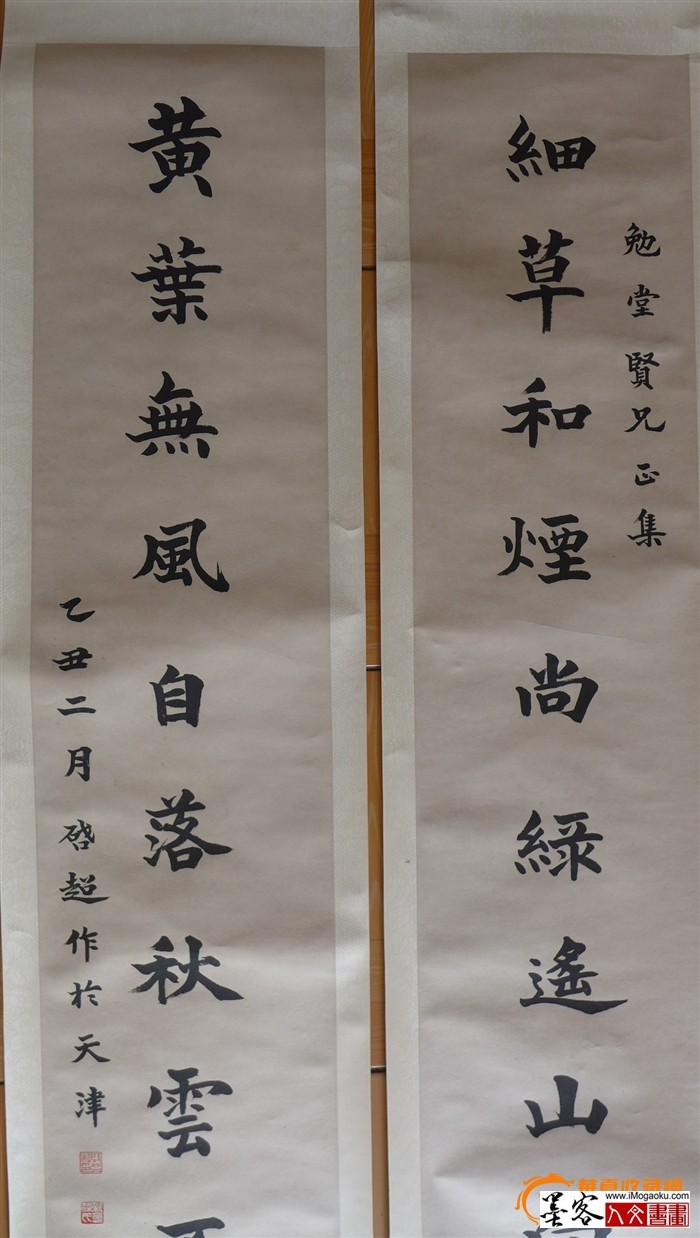 勉堂賢兄正集
細草和煙尚綠遙山
黄葉無風自落秋雲
乙丑二月啓超作於天津
墨客
www.iMogaoku.com
人文書畫